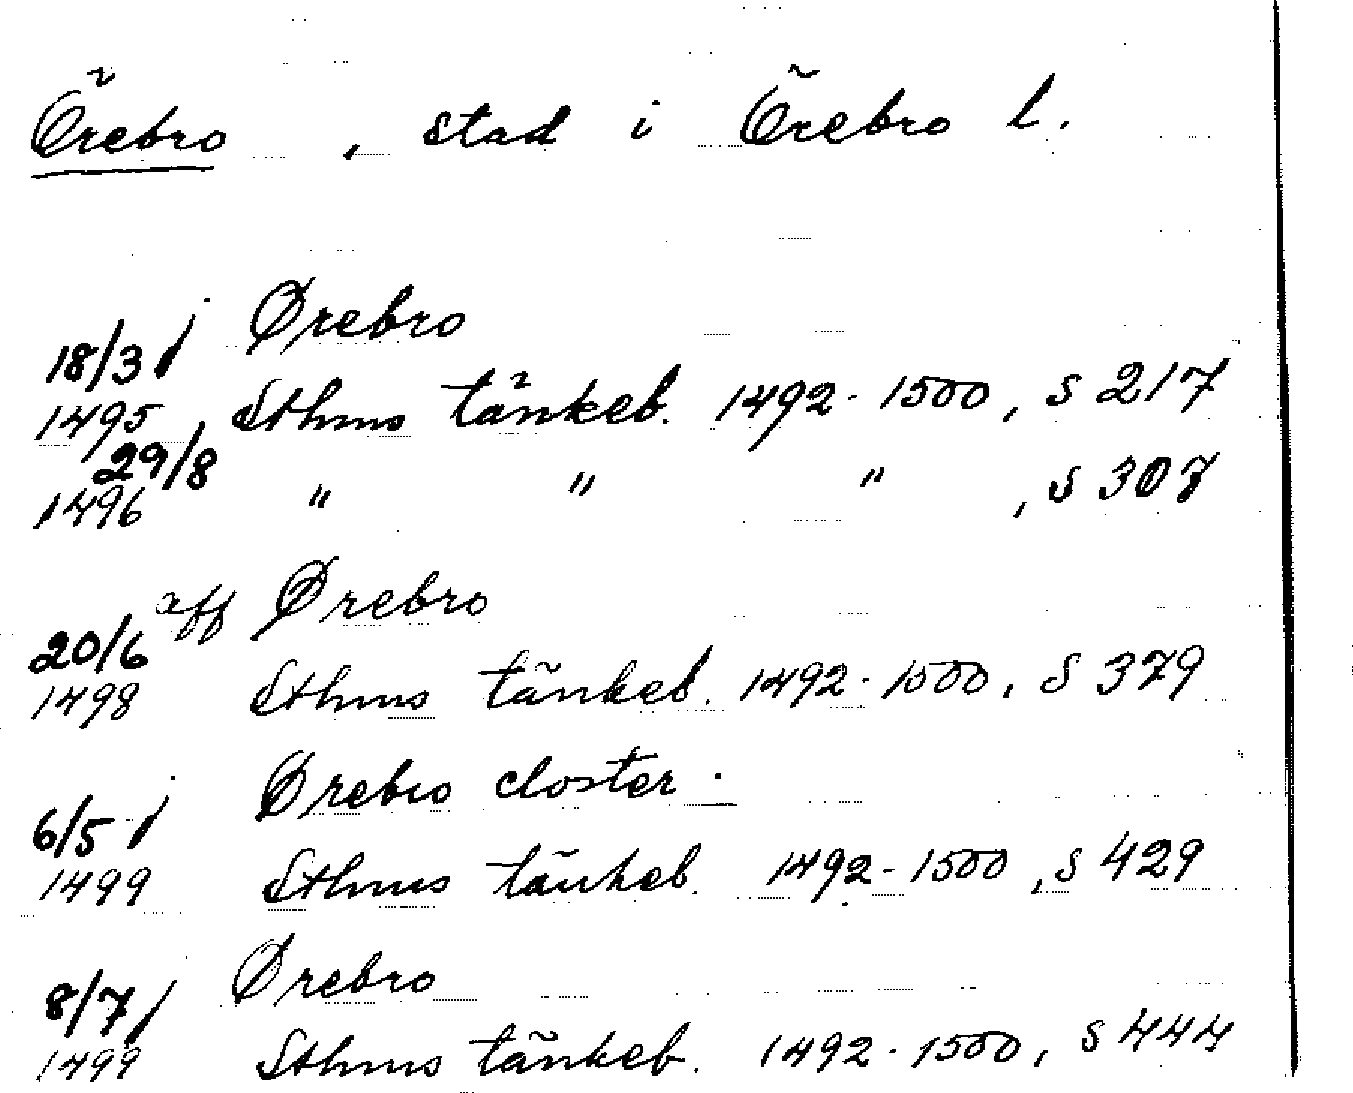 Örebro , stad i Örebro l.
j Ørebro
18/3
1495 Sthms tänkeb. 1492-1500, s 217
29/8
1496 " " " , s 307
aff Ørebro
20/6
1498 Sthms tänkeb. 1492-1500, s 379
j Ørebro closter.
6/5
1499 Sthms tänkeb. 1492-1500, s 429
j Ørebro
8/7
1499 Sthms tänkeb. 1492-1500, s 444